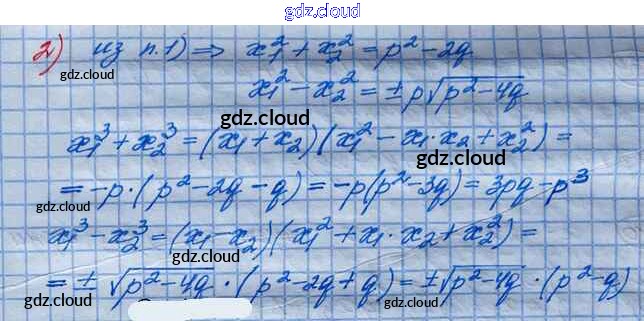 gdz.cloud
2) из п.1) ⇒ x₁² + x₂² = p² − 2q
gdz.cloud
x₁² − x₂² = ± p√(p² − 4q)
gdz.cloud
gdz.cloud
x₁³ + x₂³ = (x₁ + x₂)(x₁² − x₁·x₂ + x₂²) =
gdz.cloud
= −p·(p² − 2q − q) = −p(p² − 3q) = 3pq − p³
gdz.cloud
gdz.cloud
x₁³ − x₂³ = (x₁ − x₂)(x₁² + x₁·x₂ + x₂²) =
gdz.cloud
= ± √(p² − 4q) · (p² − 2q + q) = ± √(p² − 4q) · (p² − q)
gdz.cloud
gdz.cloud
gdz.cloud